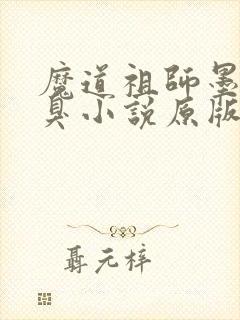 魔道祖師墨
臭小説原版
聶元梓